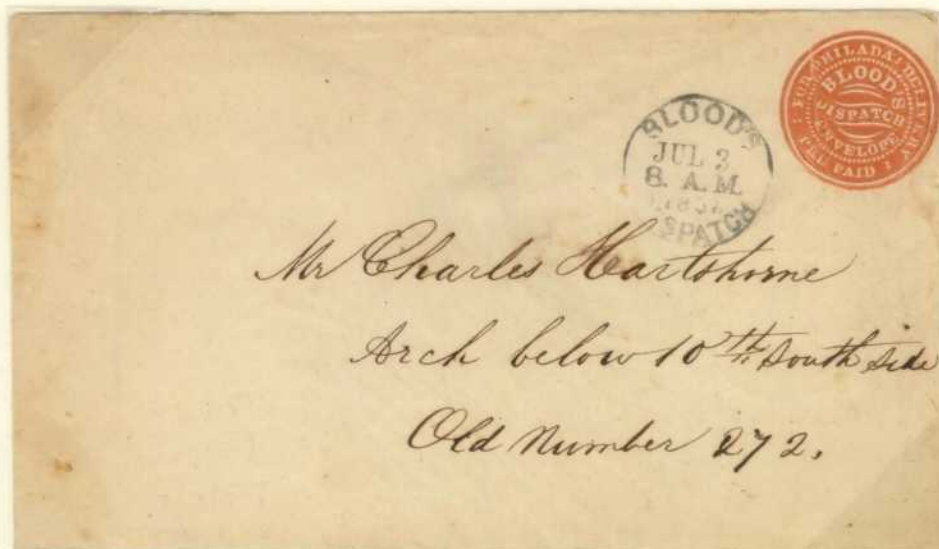 FOR PHILADA. DELIVERY
BLOOD'S
DISPATCH
ENVELOPE
PRE PAID
BLOOD'S
JUL 3
8. A.M.
DISPATCH
Mr Charles Hartshorne
Arch below 10th South Side
Old Number 272.